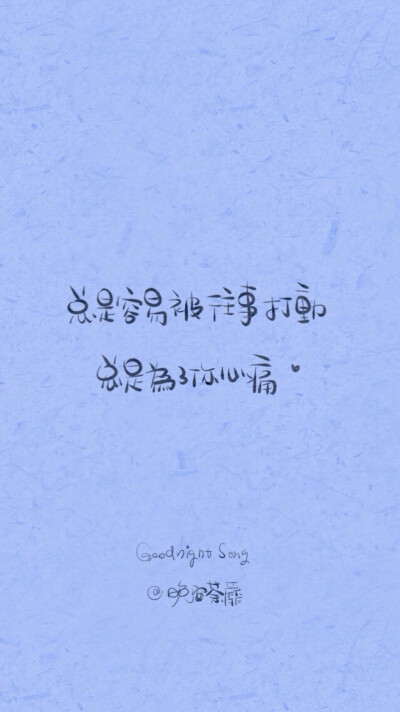 总是容易被往事打動
总是為了你心痛。
Goodnight Song
@晚安荼靡